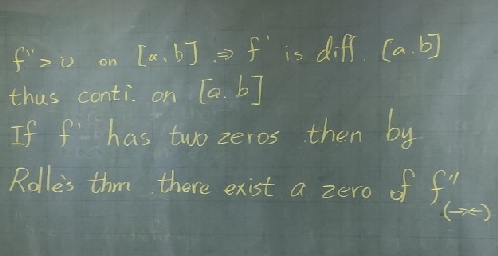 f'' > 0 on [a,b] ⇒ f' is diff. [a.b]
thus conti. on [a.b]
If f' has two zeros then by
Rolle's thm there exist a zero of f''
(→←)